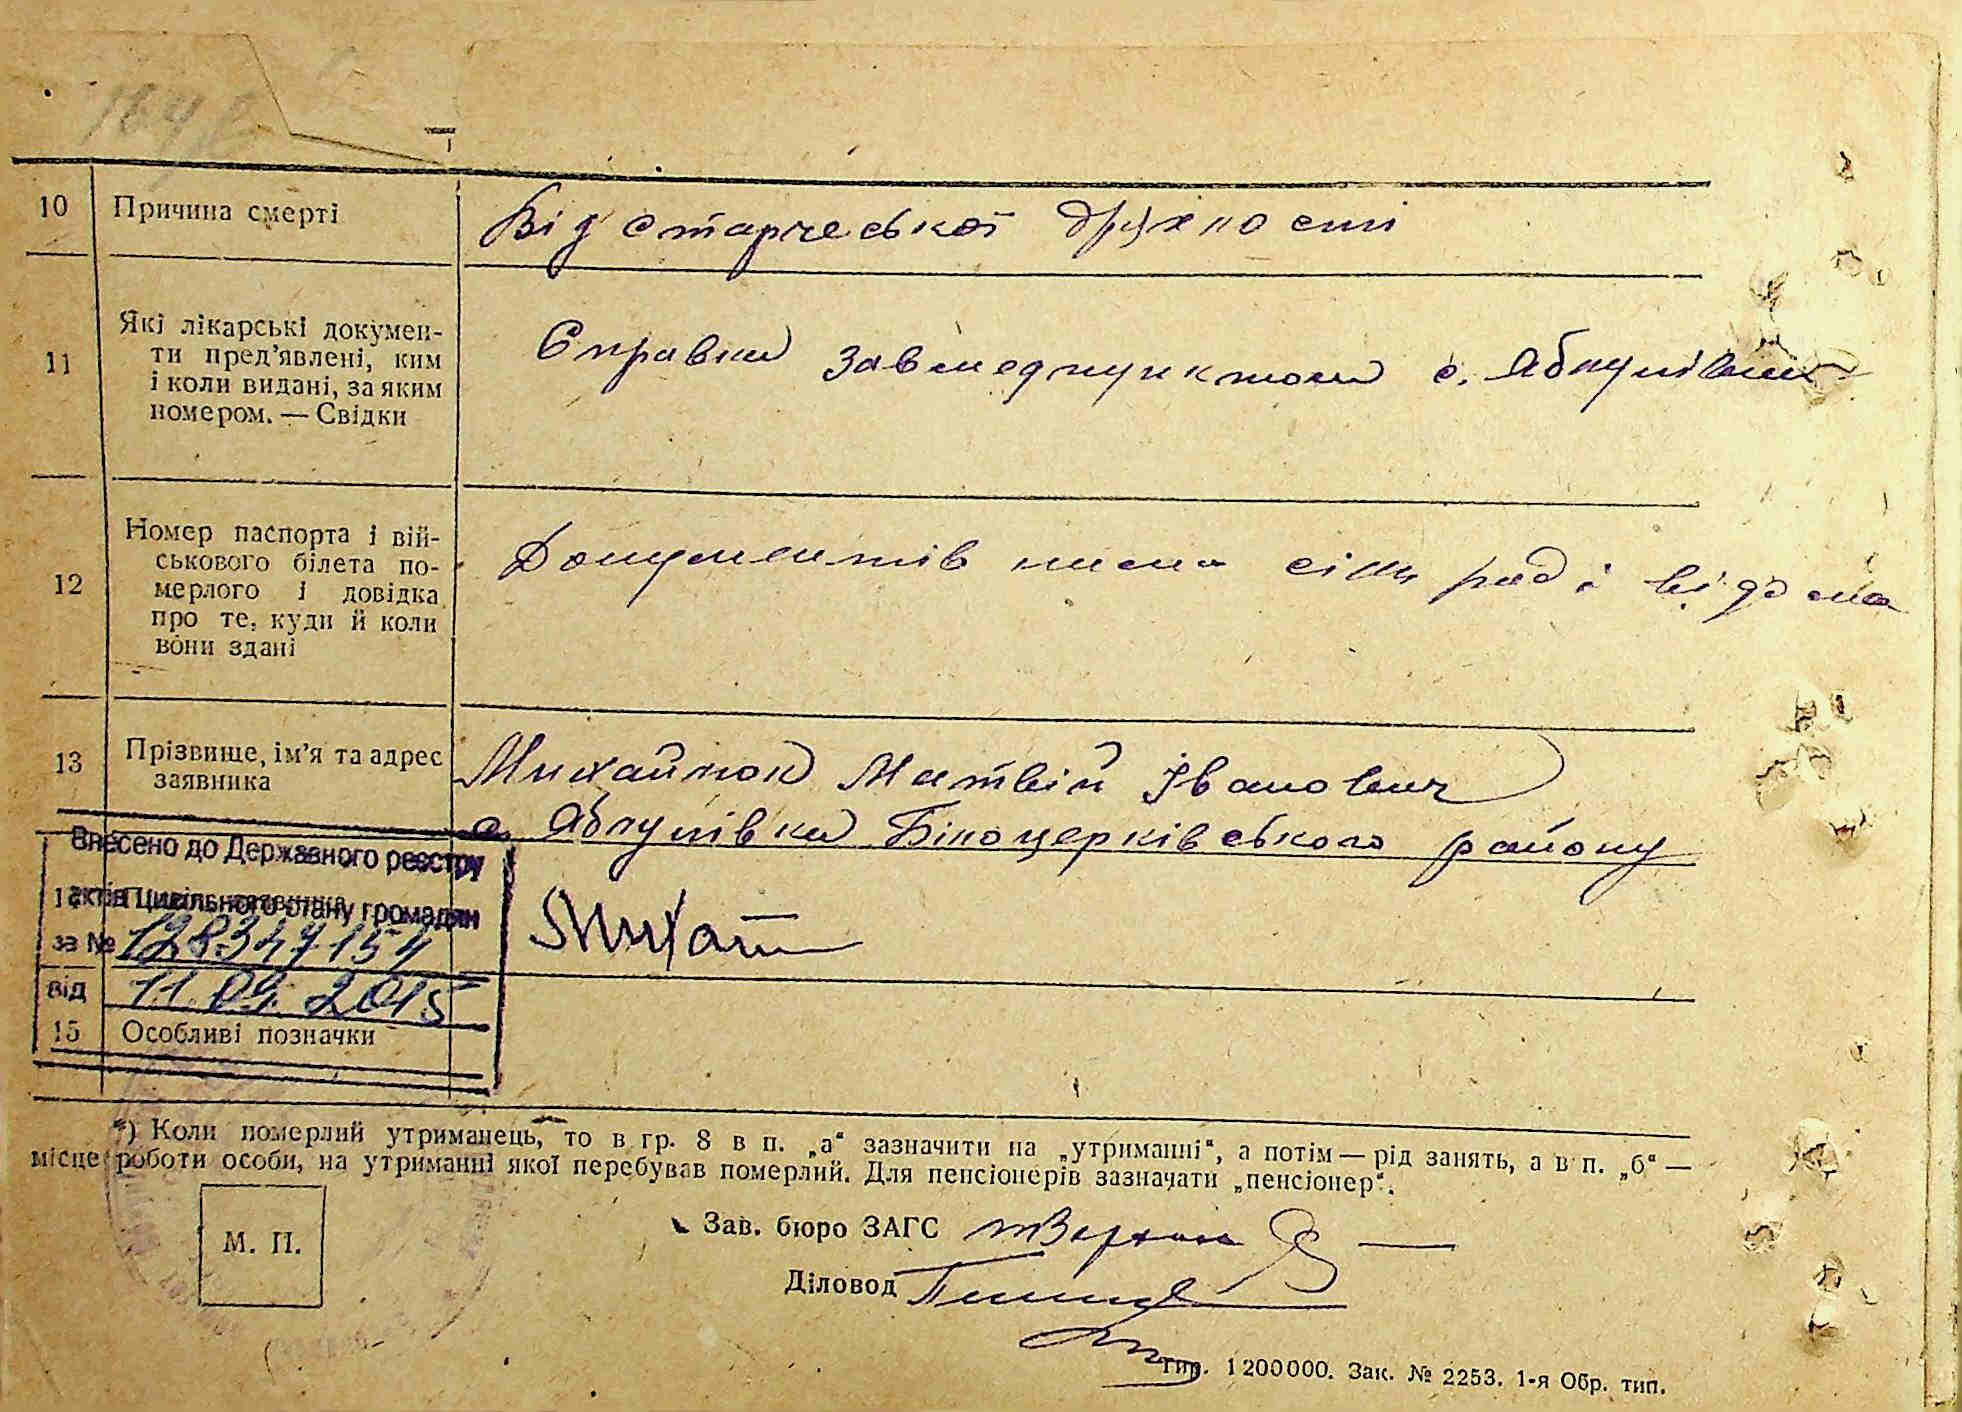 10 Причина смерті Від старческої дряхлості
11 Які лікарські докумен-
ти пред'явлені, ким
і коли видані, за яким
номером. — Свідки
Справка завмедпунктом с. Яблунівки
12 Номер паспорта і вій-
ськового білета по-
мерлого і довідка
про те, куди й коли
вони здані
Документів нема сіль раді відома
13 Прізвище, ім'я та адрес
заявника
Михайлюк Матвій Іванович
с. Яблунівка Білоцерківського району
Внесено до Державного реєстру
актів цивільного стану громадян
за № 128347154
від 11.09.2015
15 Особливі позначки
*) Коли померлий утриманець, то в гр. 8 в п. „а“ зазначити на „утриманні“, а потім — рід занять, а в п. „б“ —
місце роботи особи, на утриманні якої перебував померлий. Для пенсіонерів зазначати „пенсіонер“.
М. П.
Зав. бюро ЗАГС
Діловод
Тир. 1200000. Зак. № 2253. 1-я Обр. тип.